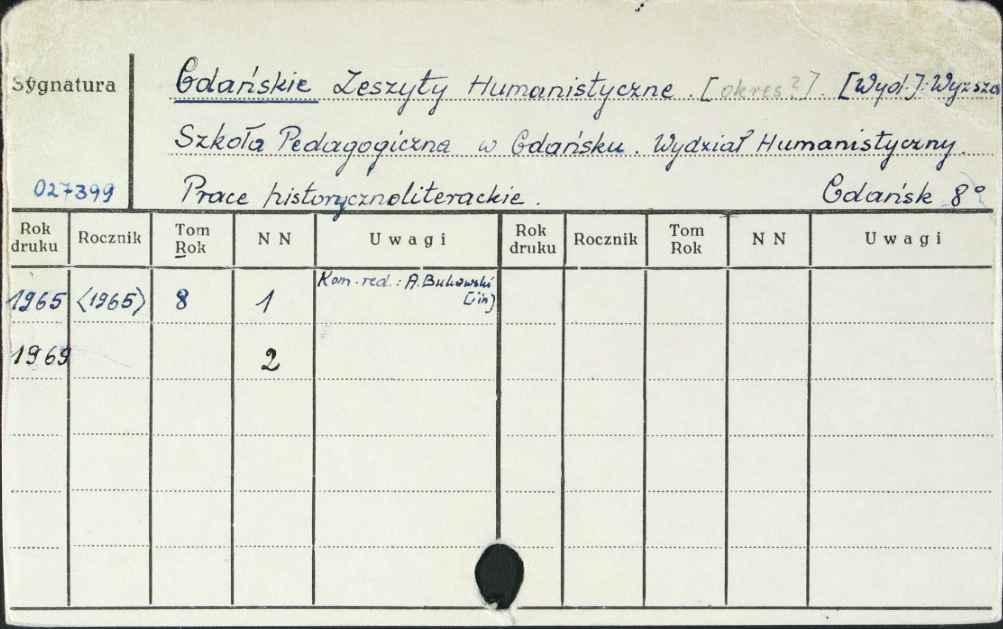 Sygnatura
Gdańskie Zeszyty Humanistyczne. [okres?]. [Wyd.]: Wyższa
Szkoła Pedagogiczna w Gdańsku. Wydział Humanistyczny.
027399
Prace historycznoliterackie. Gdańsk 8°
Rok druku Rocznik Tom Rok N N Uwagi Rok druku Rocznik Tom Rok N N Uwagi
1965 <1965> 8 1 Kom. red.: A. Bukowski
[i in]
1969 2